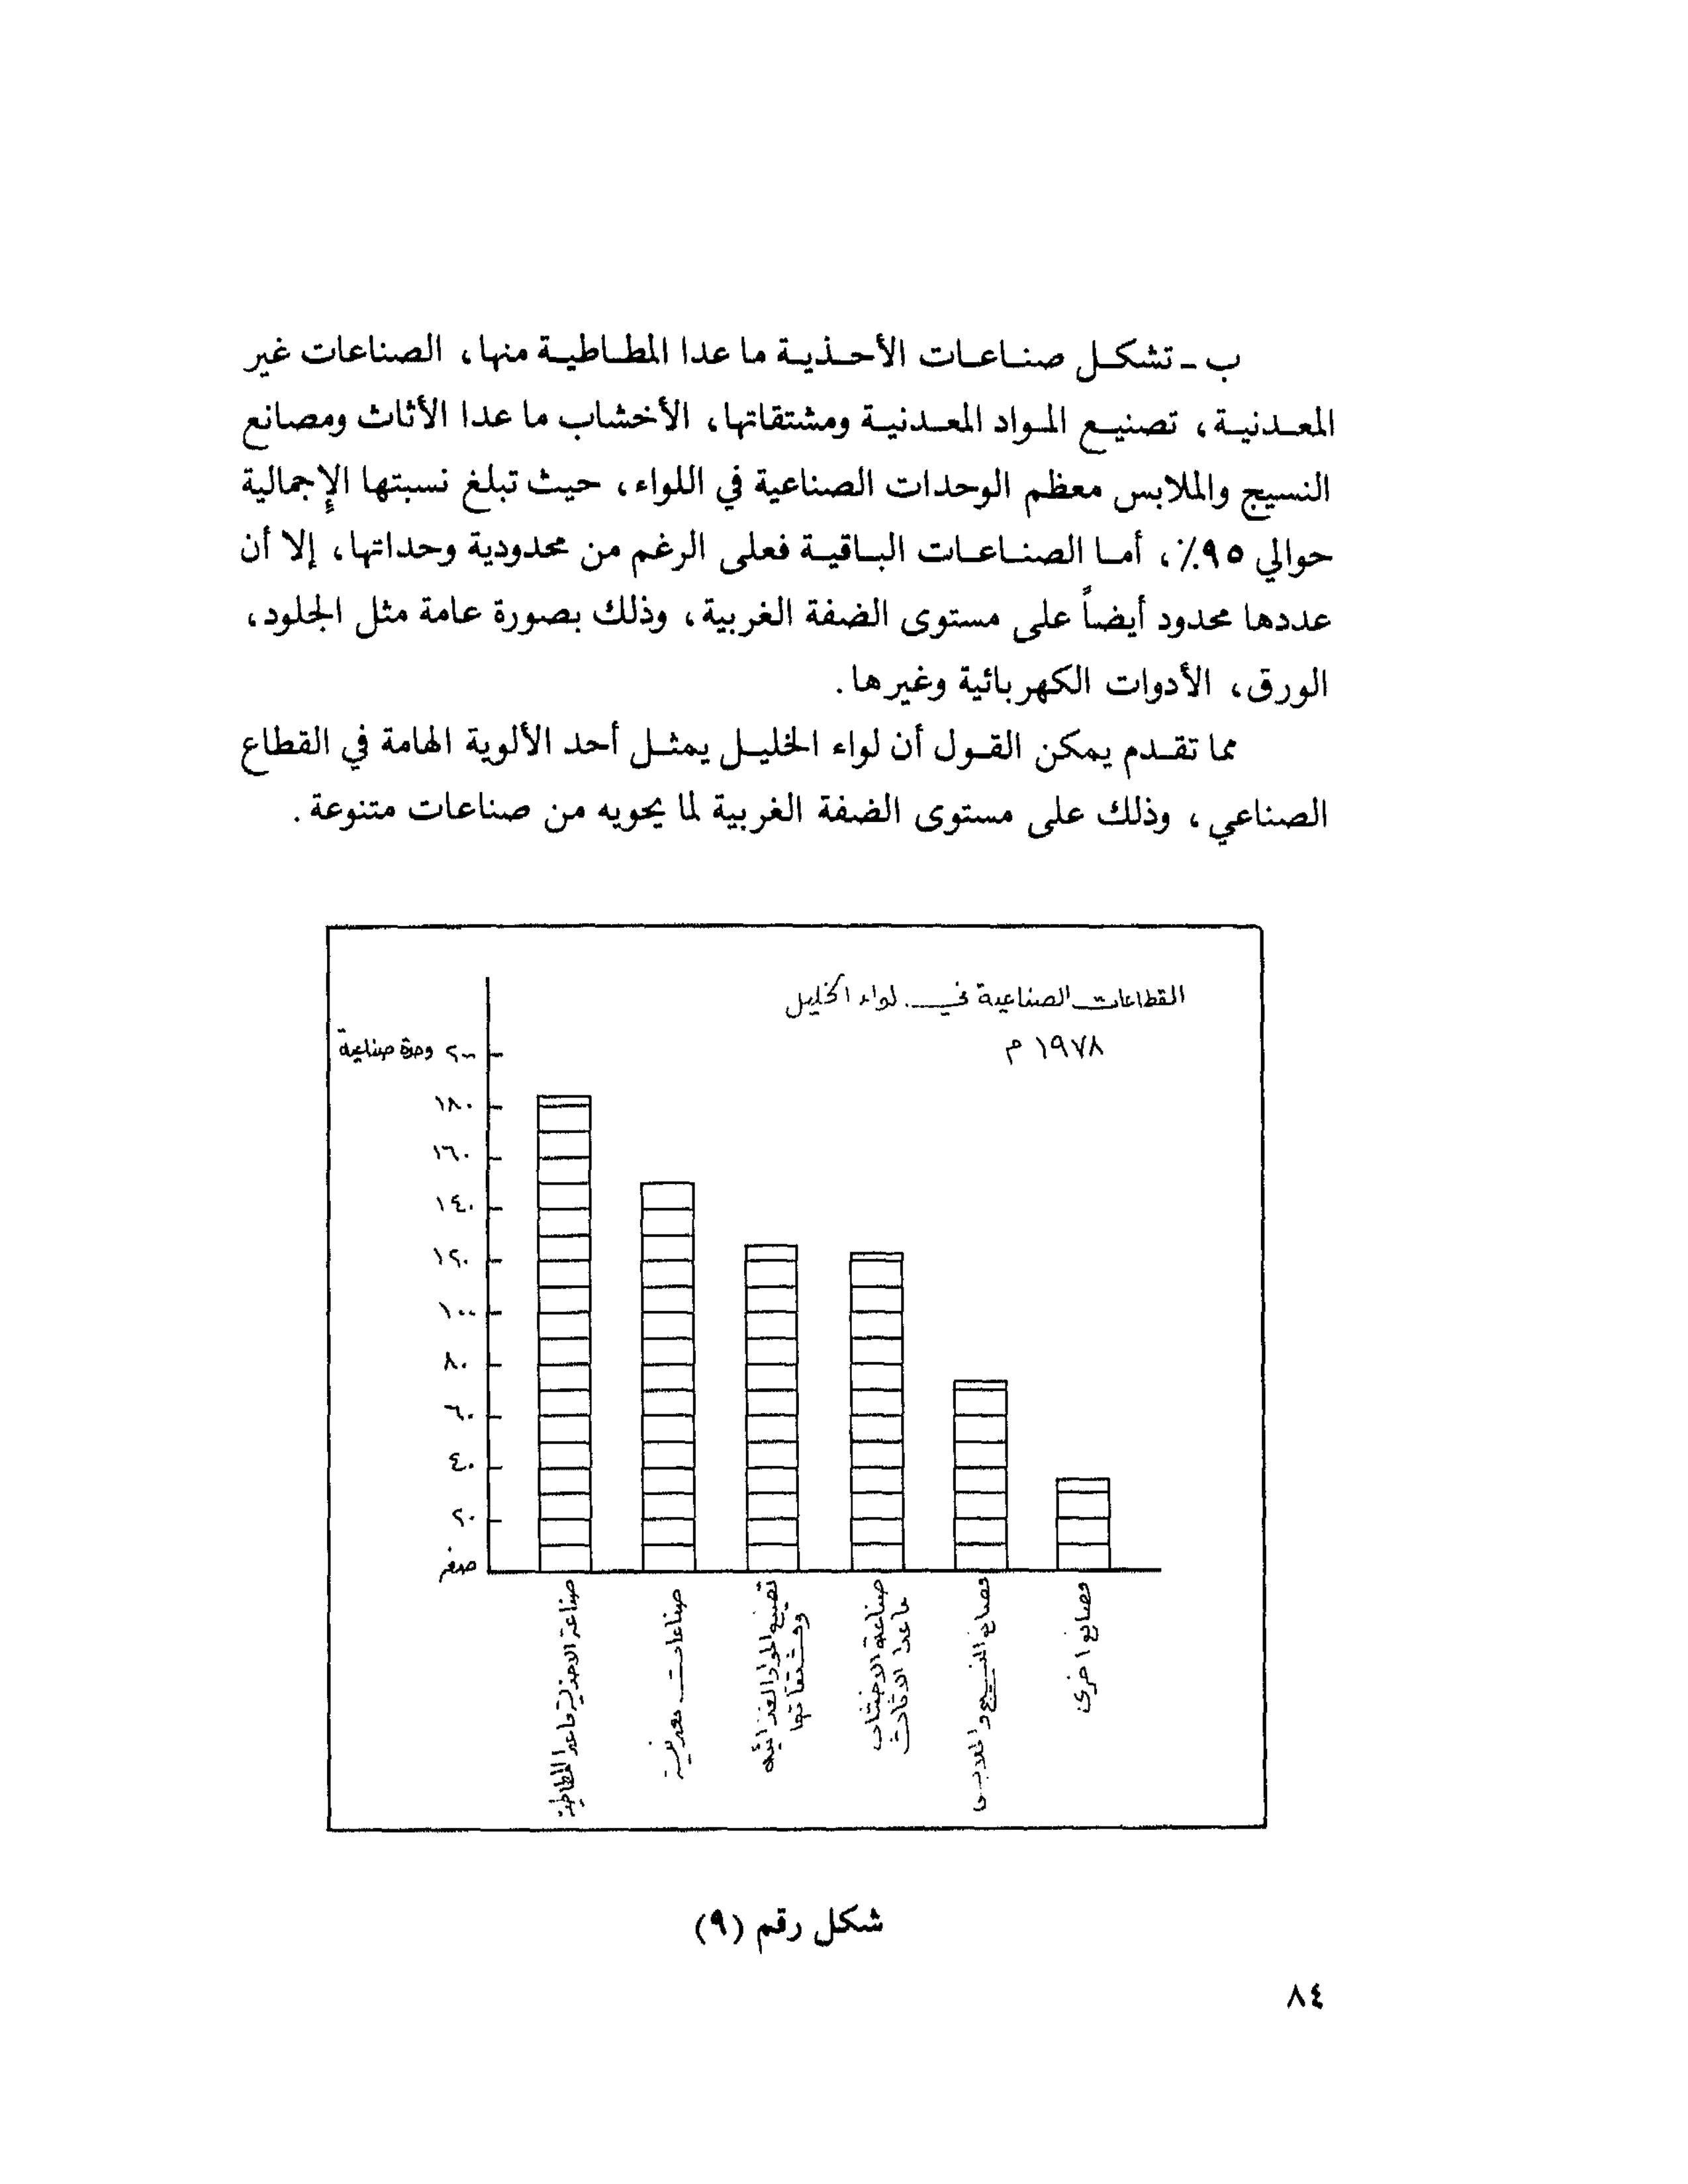 ب - تشكل صناعات الأحذية ما عدا المطاطية منها، الصناعات غير
المعدنية، تصنيع المواد المعدنية ومشتقاتها، الأخشاب ما عدا الأثاث ومصانع
النسيج والملابس معظم الوحدات الصناعية في اللواء، حيث تبلغ نسبتها الإجمالية
حوالي ٩٥٪، أما الصناعات الباقية فعلى الرغم من محدودية وحداتها، إلا أن
عددها محدود أيضاً على مستوى الضفة الغربية، وذلك بصورة عامة مثل الجلود،
الورق، الأدوات الكهربائية وغيرها.
مما تقدم يمكن القول أن لواء الخليل يمثل أحد الألوية الهامة في القطاع
الصناعي، وذلك على مستوى الضفة الغربية لما يحويه من صناعات متنوعة.
القطاعات الصناعية في لواء الخليل
١٩٧٨ م
٢٠٠ وحدة صناعية
١٨٠
١٦٠
١٤٠
١٢٠
١٠٠
٨٠
٦٠
٤٠
٢٠
صفر
صناعة الاحذية ماعدا المطاطية
صناعات معدنية
تصنيع المواد الغذائية
ومشتقاتها
صناعة الاخشاب
ماعدا الاثاث
مصانع النسيج والملابس
مصانع اخرى
شكل رقم (٩)
٨٤